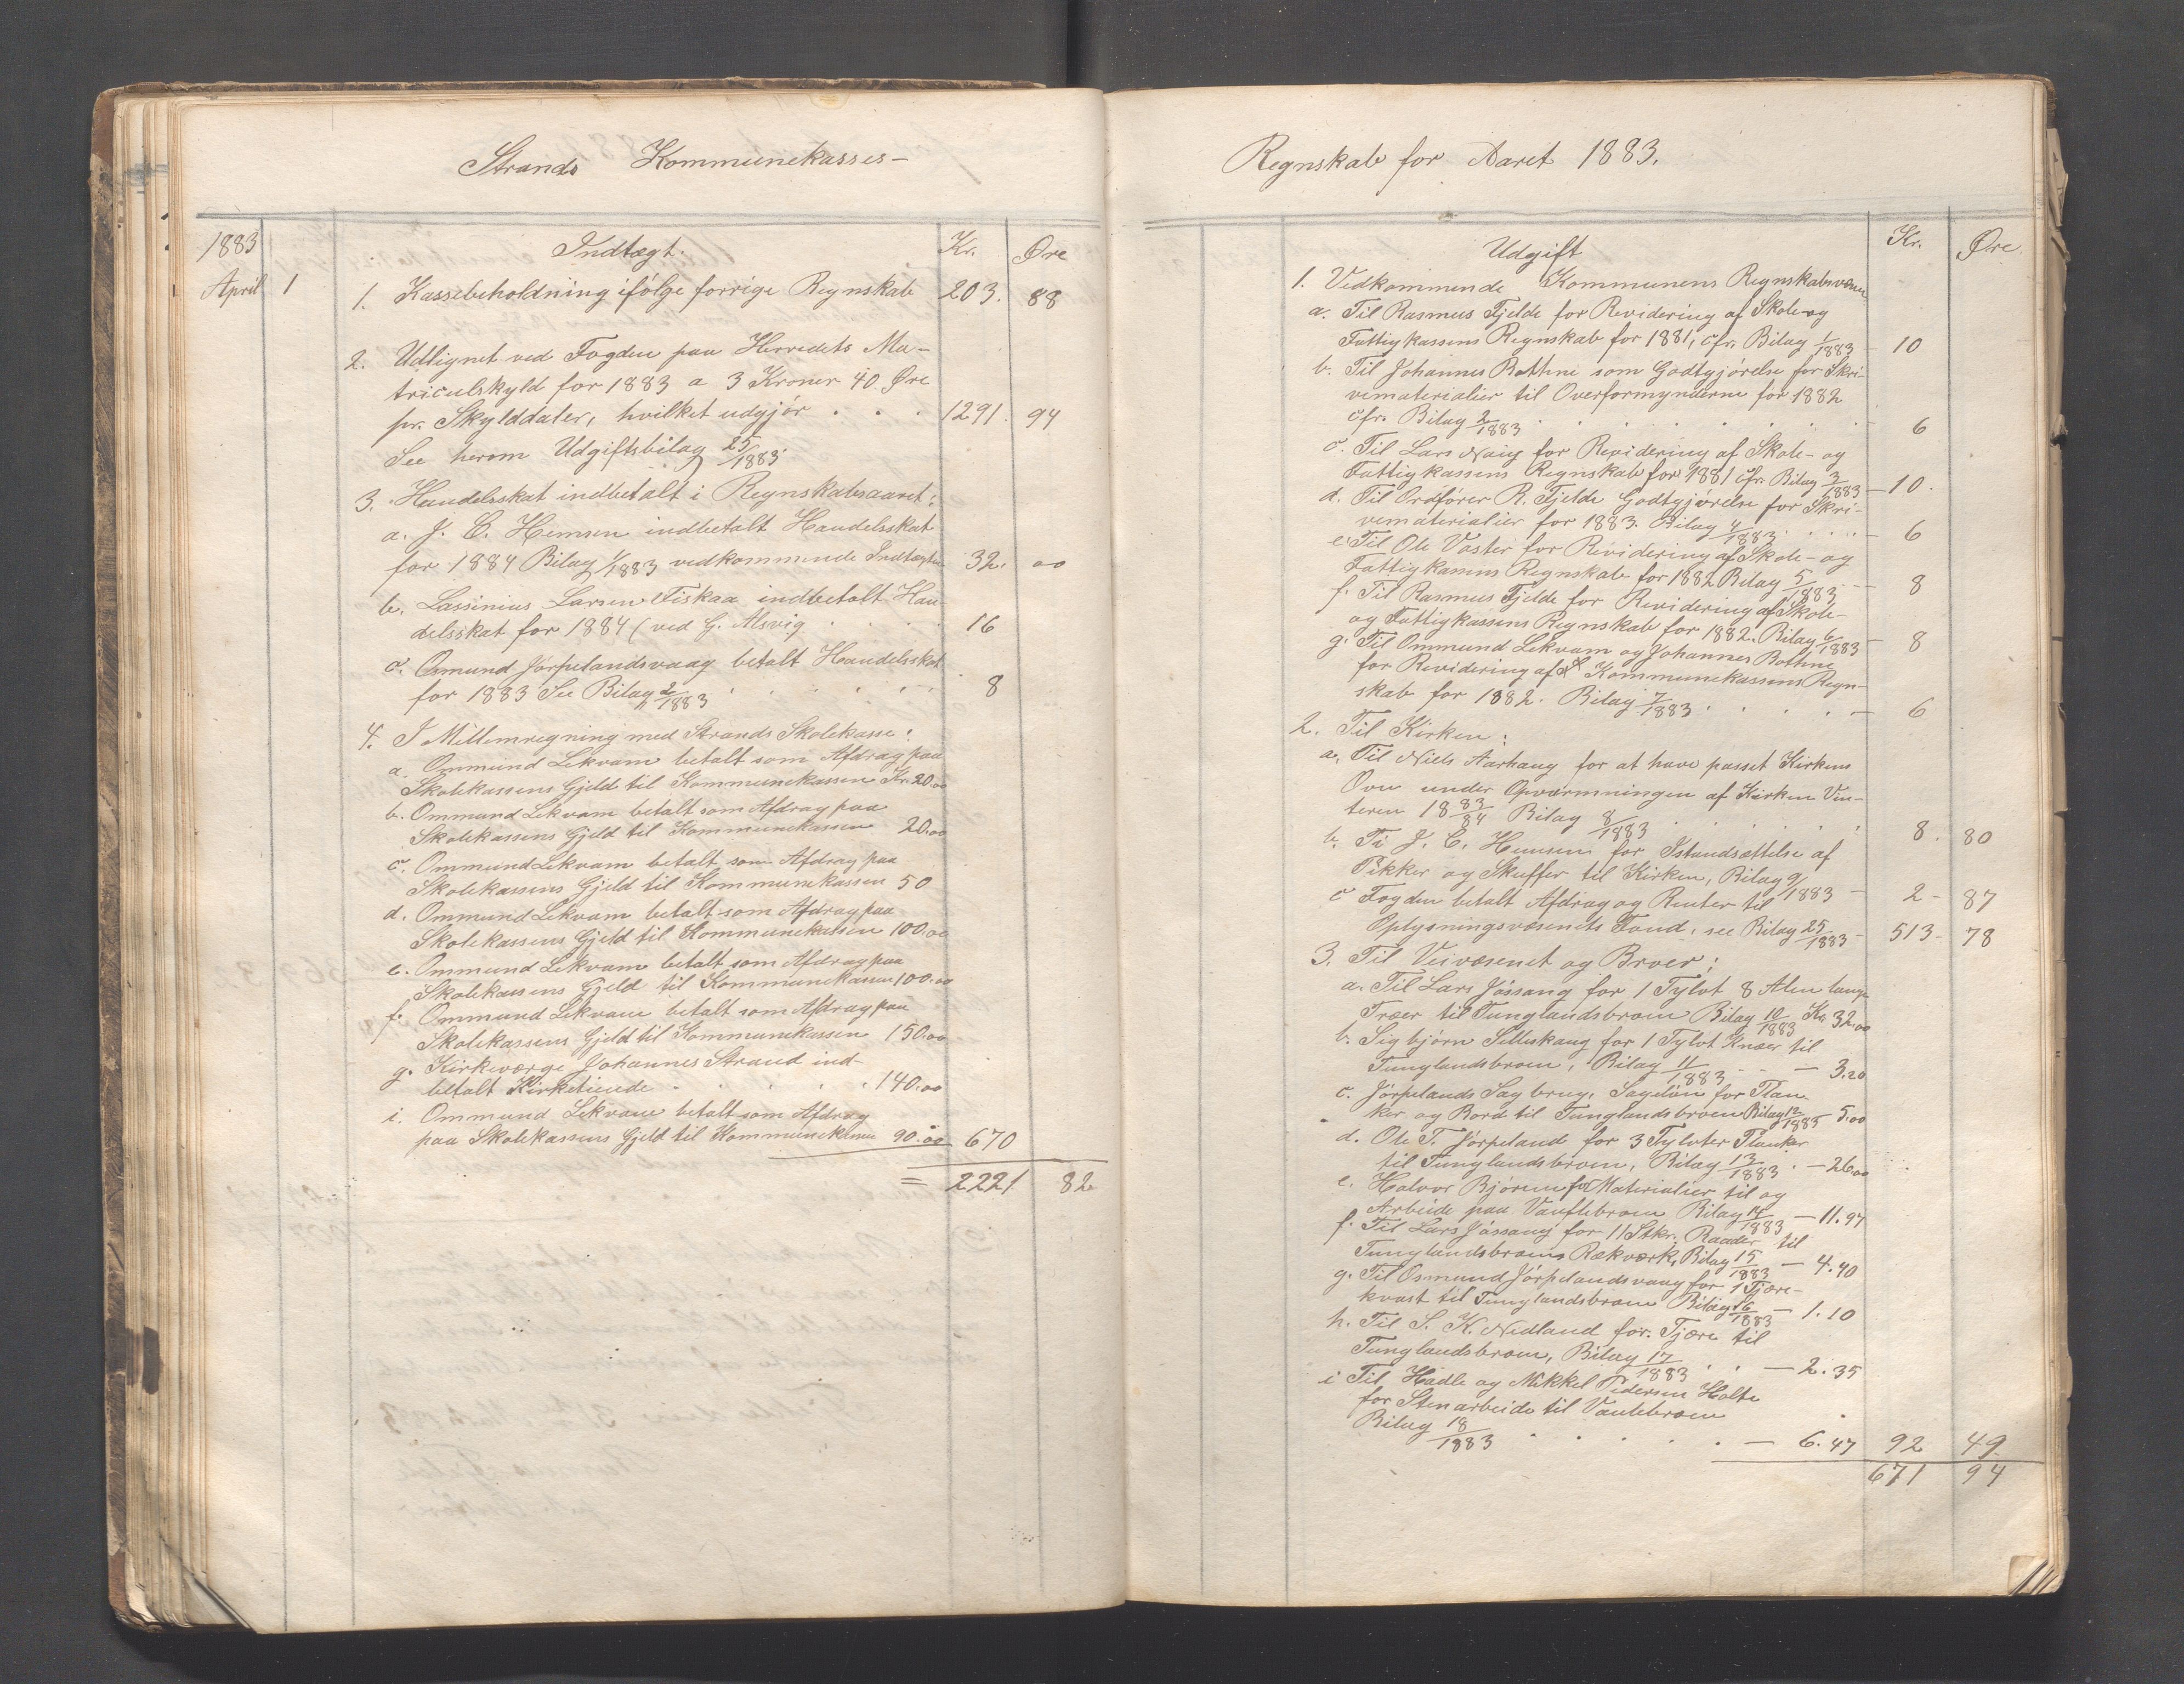 Strands Kommunekasses-
1883 Indtægt. Kr. Øre
April 1 1. Kassebeholdning ifølge forrige Regnskab 203. 88
2. Udlignet ved Fogden paa Herredets Ma-
triculskyld for 1883 a 3 Kroner 40 Øre
pr. Skylddaler, hvilket udgjør . . . 1291. 94
See herom Udgiftsbilag 25/1883.
3. Handelsskat indbetalt i Regnskabsaaret:
a. J. C. Hemsen indbetalt Handelsskat
for 1884 Bilag 1/1883 vedkommende Indtægter 32. 00
b. Lassinius Larsen Fiskaa indbetalt Han-
delsskat for 1884 (ved G. Alsvig . . . . 16
c. Osmund Jørpelandsvaag betalt Handelsskat
for 1883 See Bilag 2/1883 . . . . . . 8
4. I Mellemregning med Strands Skolekasse:
a. Ommund Lekvam betalt som Afdrag paa
Skolekassens Gjeld til Kommunekassen Kr. 20.00
b. Ommund Lekvam betalt som Afdrag paa
Skolekassens Gjeld til Kommunekassen 20.00
c. Ommund Lekvam betalt som Afdrag paa
Skolekassens Gjeld til Kommunekassen 50
d. Ommund Lekvam betalt som Afdrag paa
Skolekassens Gjeld til Kommunekassen 100.00
e. Ommund Lekvam betalt som Afdrag paa
Skolekassens Gjeld til Kommunekassen 100.00
f. Ommund Lekvam betalt som Afdrag paa
Skolekassens Gjeld til Kommunekassen 150.00
g. Kirkeværge Johannes Strand ind-
betalt Kirketiende . . . . . 140.00
i. Ommund Lekvam betalt som Afdrag
paa Skolekassens Gjeld til Kommunekassen 90.00 670
= 2221 82
Regnskab for Aaret 1883.
Udgift Kr. Øre.
1. Vedkommende Kommunens Regnskabsvæsen
a. Til Rasmus Fjelde for Revidering af Skole- og
Fattigkassens Regnskab for 1881, cfr. Bilag 1/1883 - 10
b. Til Johannes Bothne som Godtgjørelse for Skri-
vematerialier til Overformynderne for 1882
cfr. Bilag 2/1883 . . . . . . . . 6
c. Til Lars Naig for Revidering af Skole- og
Fattigkassens Regnskab for 1881 cfr. Bilag 3/1883 - 10.
d. Til Ordfører R. Fjelde Godtgjørelse for Skri-
vematerialier for 1883. Bilag 4/1883 . . . . - 6
e. Til Ole Vaster for Revidering af Skole- og
Fattigkassens Regnskab for 1882 Bilag 5/1883 - - 8
f. Til Rasmus Fjelde for Revidering af Skole-
og Fattigkassens Regnskab for 1882. Bilag 6/1883 - 8
g. Til Ommund Lekvam og Johannes Bothne
for Revidering af Kommunekassens Regn-
skab for 1882. Bilag 7/1883 . . . . - 6
2. Til Kirken:
a. Til Niels Aarhaug for at have passet Kirkens
Ovn under Opvarmningen af Kirken Vin-
teren 18 83/84 Bilag 8/1883 . . . . . . 8. 80
b. Ti J. C. Hemsen for Istandsættelse af
Pikker og Skuffer til Kirken, Bilag 9/1883 - 2- 87
c Fogden betalt Afdrag og Renter til
Oplysningsvæsenets Fond, see Bilag 25/1883 - 513- 78
3. Til Veivæsenet og Broer:
a. Til Lars Jøssang for 1 Tylvt 8 Alen lange
Træer til Tunglandsbroen Bilag 10/1883 Kr 32.00
b. Sigbjørn Selleskaug for 1 Tylvt Knæer til
Tunglandsbroen, Bilag 11/1883 - - - 3.20
c. Jørpelands Sagbrug, Sageløn for Plan-
ker og Bord til Tunglandsbroen Bilag 12/1883 5.00
d. Ole T. Jørpeland for 3 Tylvter Planker
til Tunglandsbroen, Bilag 13/1883 . - 26.00
e. Halvor Bjøreim for Materialier til og
Arbeide paa Vautlebroen Bilag 14/1883 - 11.97
f. Til Lars Jøssang for 11 Stkr. Raader til
Tunglandsbroens Rækværk, Bilag 15/1883 - 4.40
g. Til Osmund Jørpelandsvaag for 1 Tjære-
kvast til Tunglandsbroen Bilag 16/1883 - 1.10
h. Til S. K. Nedland for Tjære til
Tunglandsbroen, Bilag 17/1883 . . - 2.35
i Til Hadle og Mikkel Pedersen Holte
for Stenarbeide til Vautlebroen
Bilag 18/1883 . . . . . - 6.47 92 49
671 94